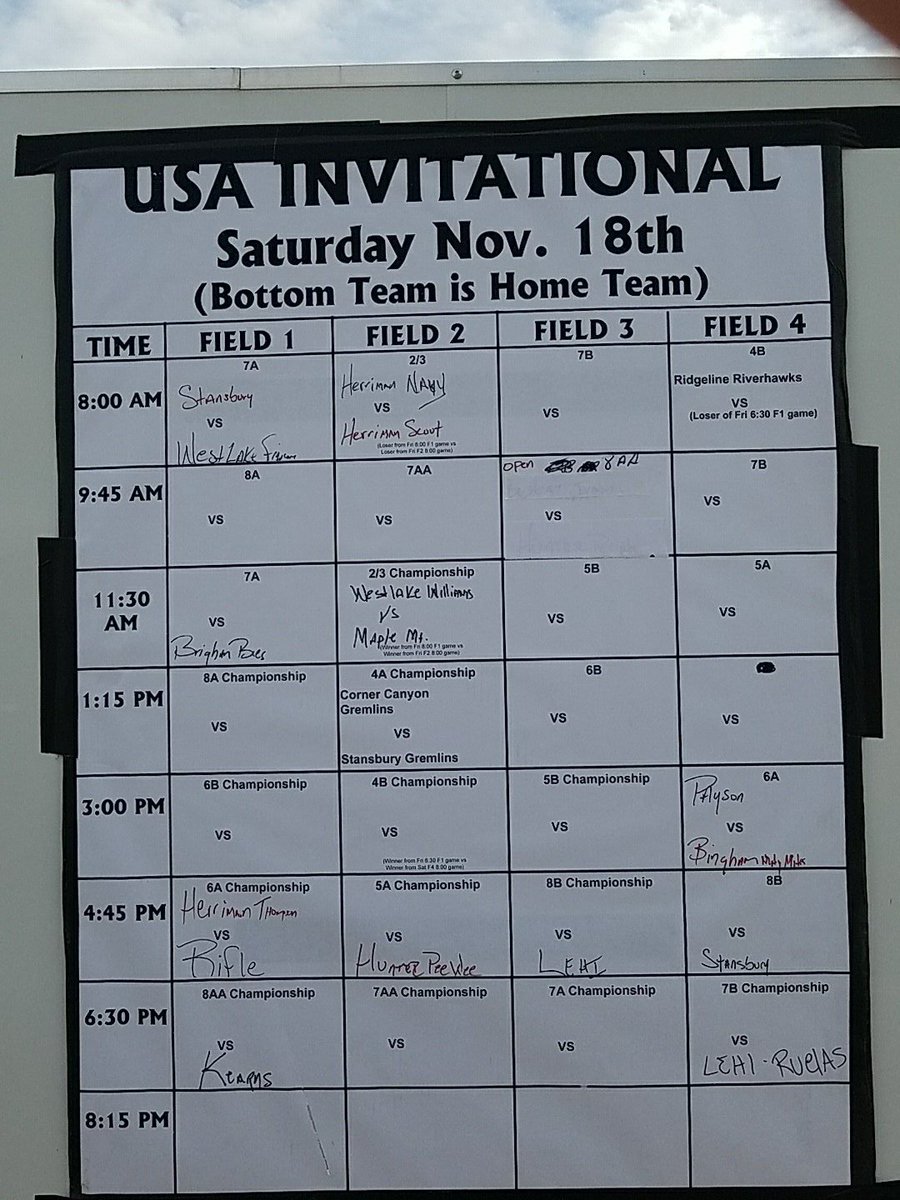 USA INVITATIONAL
Saturday Nov. 18th
(Bottom Team is Home Team)
TIME FIELD 1 FIELD 2 FIELD 3 FIELD 4
8:00 AM
7A
Stansbury
VS
WestLake
2/3
Herriman NAVY
VS
Herriman Scout
(Loser from Fri 6:00 F1 game vs
Loser from Fri F2 8:00 game)
7B
VS
4B
Ridgeline Riverhawks
VS
(Loser of Fri 6:30 F1 game)
9:45 AM
8A
VS
7AA
VS
OPEN 8AA
VS
7B
VS
11:30
AM
7A
VS
Brigham Bees
2/3 Championship
Westlake Williams
VS
Maple Mt.
(Winner from Fri 6:00 F1 game vs
Winner from Fri F2 8:00 game)
5B
VS
5A
VS
1:15 PM
8A Championship
VS
4A Championship
Corner Canyon
Gremlins
VS
Stansbury Gremlins
6B
VS
VS
3:00 PM
6B Championship
VS
4B Championship
VS
(Winner from Fri 6:30 F1 game vs
Winner from Sat F4 8:00 game)
5B Championship
VS
6A
PAyson
VS
Bingham Mighty Mites
4:45 PM
6A Championship
Herriman Thompson
VS
Rifle
5A Championship
VS
Hunter PeeWee
8B Championship
VS
LEHI
8B
VS
Stansbury
6:30 PM
8AA Championship
VS
KEARNS
7AA Championship
VS
7A Championship
VS
7B Championship
VS
LEHI - RUElAS
8:15 PM